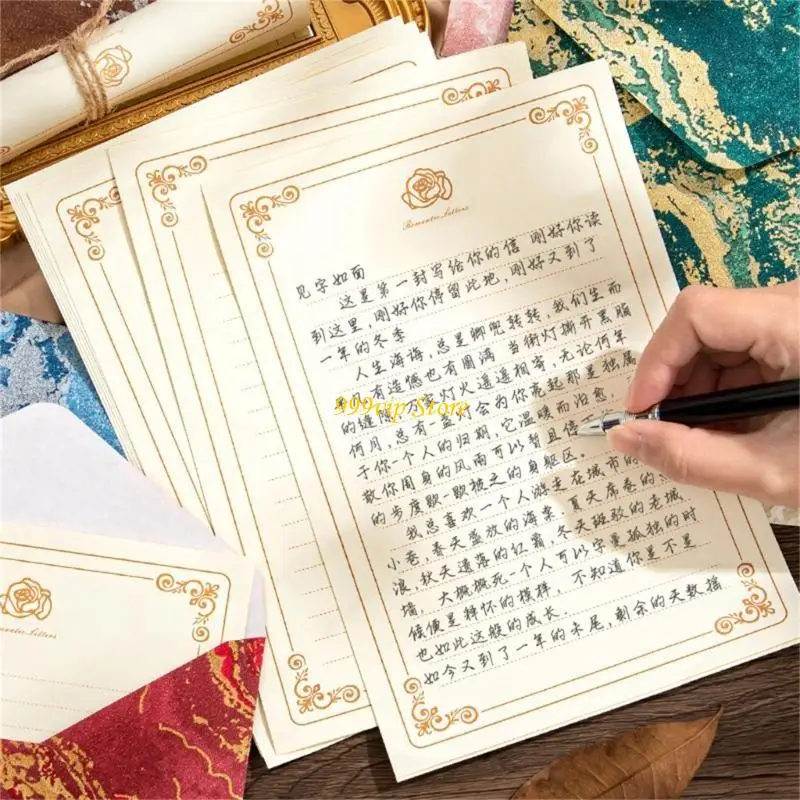 Romantic Letters
见字如面
这是第一封写给你的信 刚好你读
到这里，刚好你停留此地，刚好又到了
一年的冬季
人生海海，总是兜兜转转，我们生而
有遗憾也有圆满 当街灯撕开黑脂
的缝隙，万家灯火遥遥相寄，无论何年
何月，总有一盏灯会为你亮起那是独属
于你一个人的归期，它温暖而治愈.
散你周身的风雨可以暂且停
的步度歇一歇疲乏的身躯区.
我总喜欢一个人游走在城市的
小巷，春天盛放的海棠，夏天席卷的
浪，秋天遗落的红霜，冬天斑驳的老城
墙，大概概死一个人可以字量孤独的时
候便是释怀的模样，不知道你是不是
也如此这般的成长.
如今又到了一年的末尾，剩余的天数摇
999vip Store
Romantic Letters